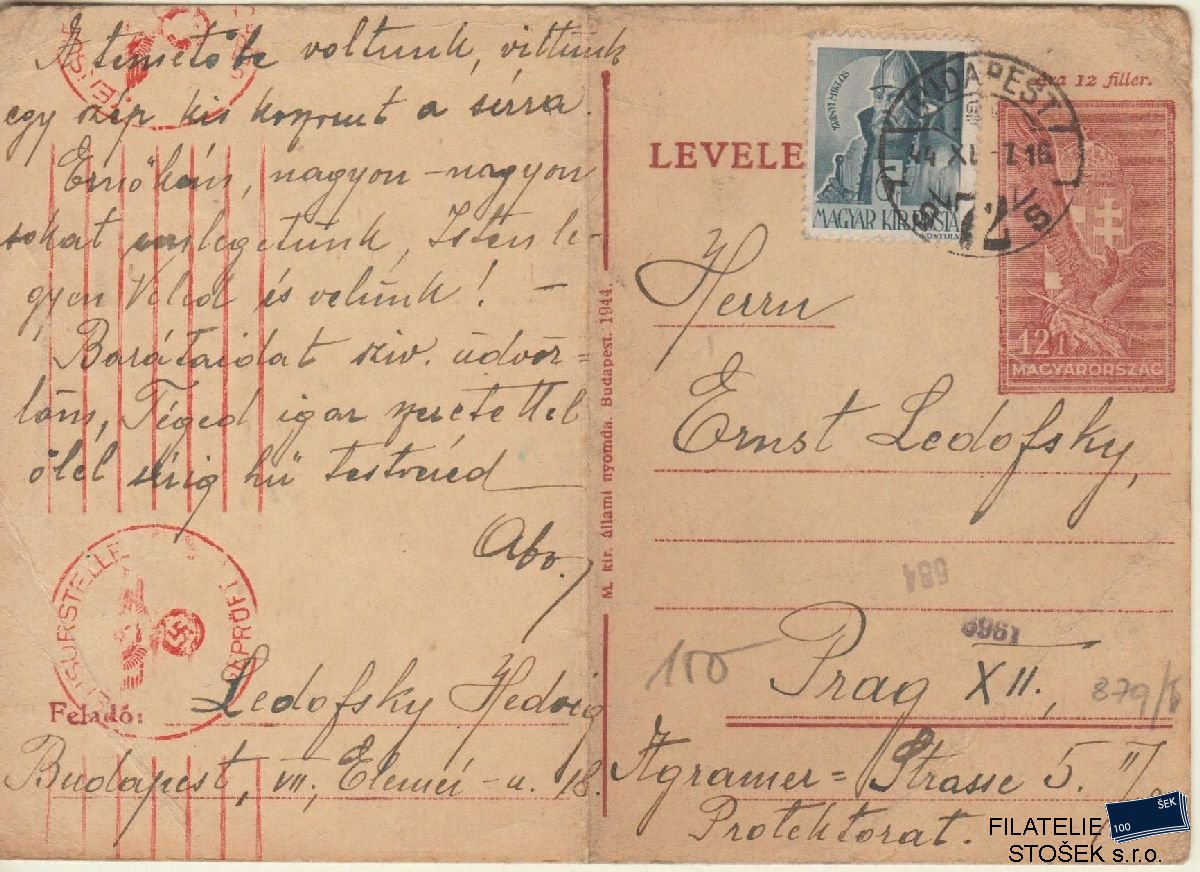 A temetőbe voltunk, vittünk
egy szép kis koszorut a sírra.
Ernőkém, nagyon-nagyon
sokat emlegetünk, Isten le-
gyen Veled és velünk! –
Barátaidat sziv. üdvöz=
löm, Téged igaz szeretettel
ölel sírig hű testvéred
Feladó: Ledofsky Hedvig
Budapest, VII, Elemér-u. 18.
ZENSURSTELLE
GEPRÜFT
M. kir. állami nyomda. Budapest. 1944.
Ára 12 fillér.
LEVELE
ZRINYI MIKLÓS
MAGYAR KIR. POSTA
BUDAPEST
44 XI -7 16
72
12f
MAGYARORSZÁG
Herrn
Ernst Ledofsky,
684
1969
100
Prag XII,
Agramer=Strasse 5. II/
Protektorat.
100 ŠEK
FILATELIE
STOŠEK s.r.o.